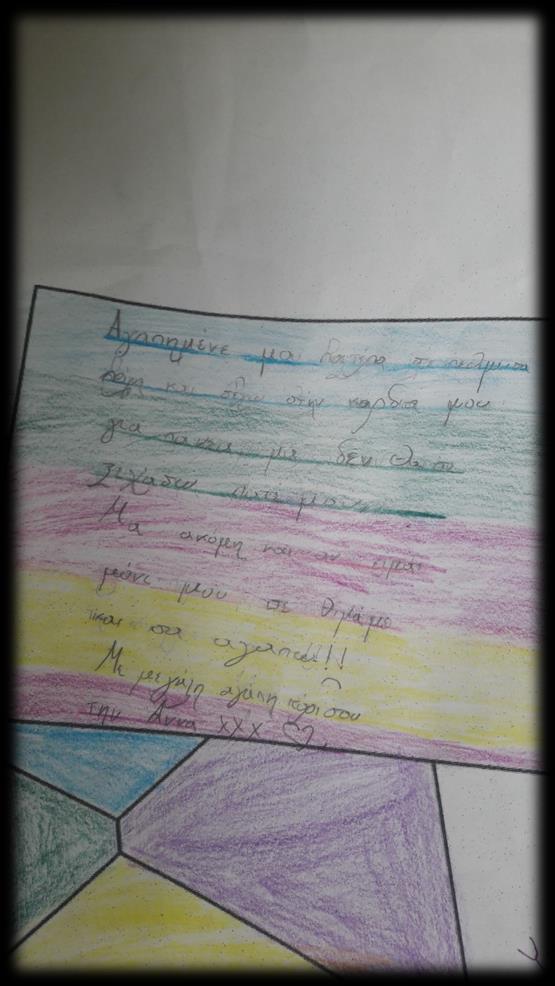 Αγαπημένε μου πατέρα σε
και στην καρδιά μου
για πάντα μα δεν θα σε
ξεχάσω ποτέ μου
Μα ακόμη και αν είμαι
μόνη μου σε θυμάμε
και σε αγαπώ!!!
Με μεγάλη αγάπη κόρη σου
την Άννα xxx ♡